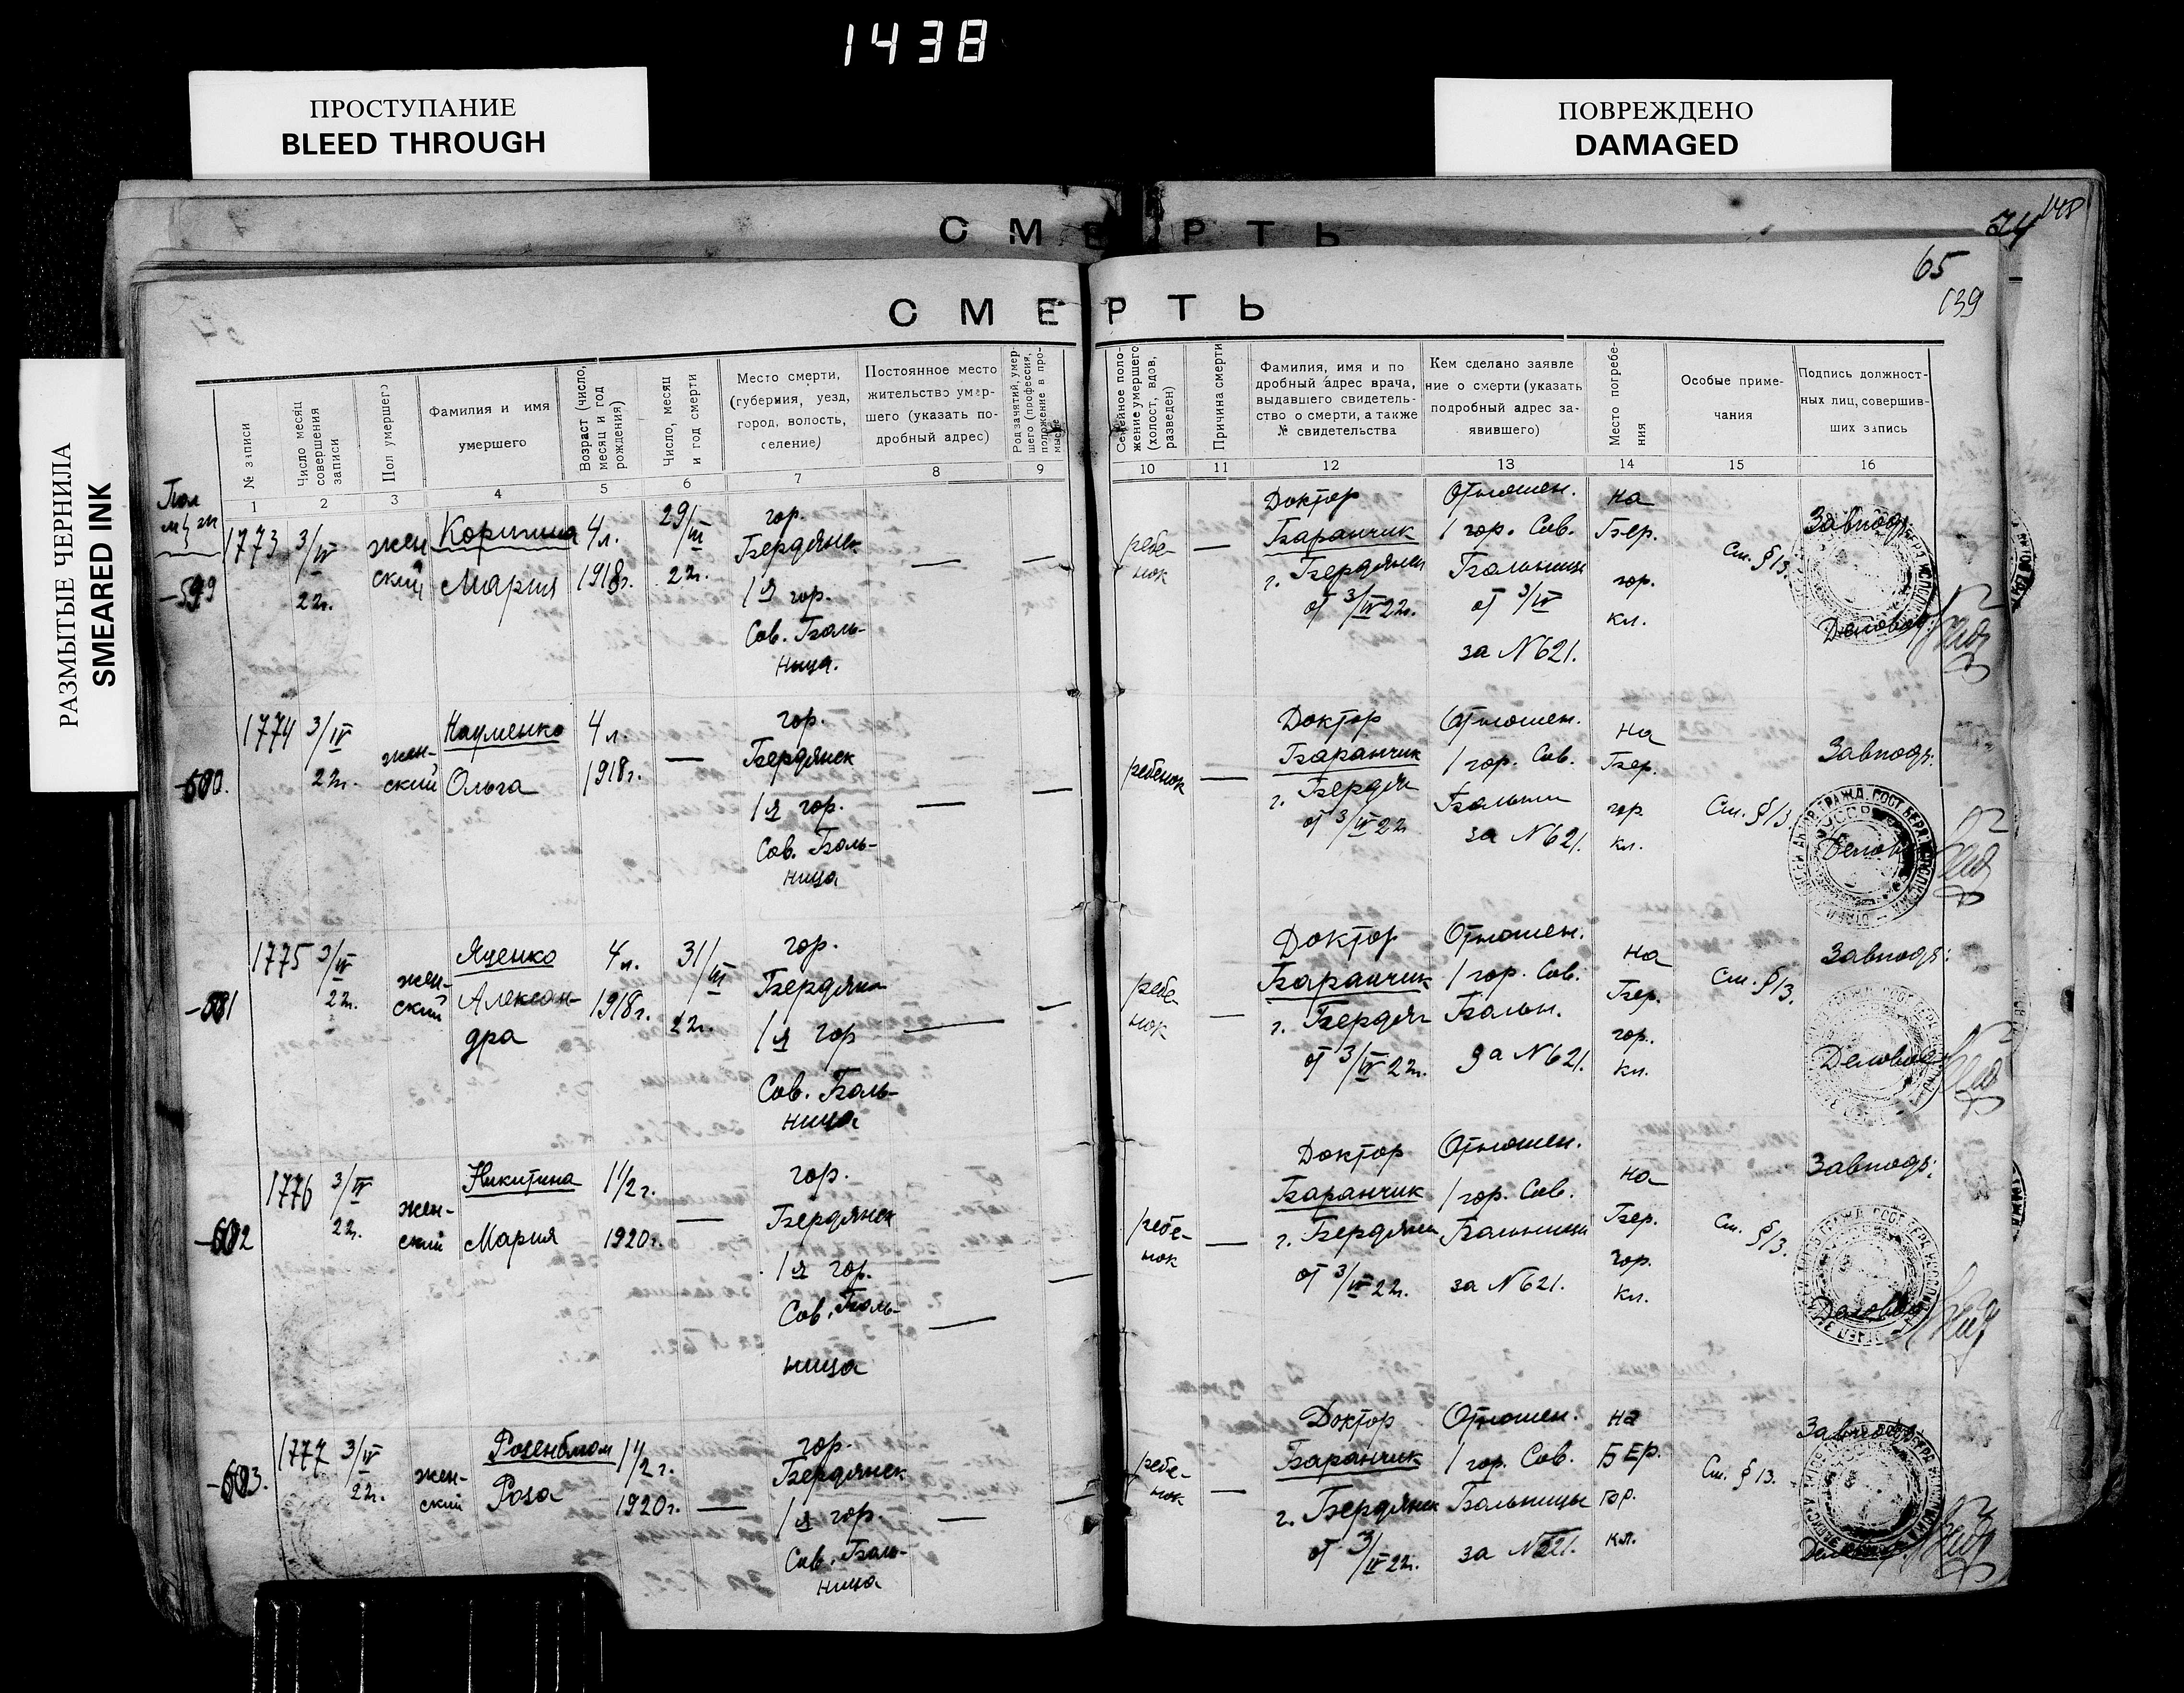 1438
ПРОСТУПАНИЕ
BLEED THROUGH
ПОВРЕЖДЕНО
DAMAGED
РАЗМЫТЫЕ ЧЕРНИЛА
SMEARED INK
148
24
СМЕРТЬ
65
139
СМЕРТЬ
№ записи
Число месяц совершения записи
Пол умершего
Фамилия и имя
умершего
Возраст (число, месяц и год рождения)
Число, месяц и год смерти
Место смерти,
(губерния, уезд,
город, волость,
селение)
Постоянное место
жительство умер-
шего (указать по-
дробный адрес)
Род занятий, умер-
шего (профессия,
положение в про-
мысле
Семейное поло-
жение умершего
(холост, вдов,
разведен)
Причина смерти
Фамилия, имя и по
дробный адрес врача,
выдавшего свидетель-
ство о смерти, а также
№ свидетельства
Кем сделано заявле
ние о смерти (указать
подробный адрес за-
явившего)
Место погребе-
ния
Особые приме-
чания
Подпись должност-
ных лиц, совершив-
ших запись
1 2 3 4 5 6 7 8 9 10 11 12 13 14 15 16
Пол
м ж
-599
1773
3/IV
22г.
жен
ский
Мария
4 л.
1918г.
29/III
22г.
гор.
Бердянск
1я гор.
Сов. Боль-
ница.
—
—
ребе-
нок
—
Доктор
Баранчик
г. Бердянск
от 3/IV 22г.
Отношен.
1 гор. Сов.
Больницы
от 3/IV
за N 621.
на
Бер.
гор.
кл.
См. § 13.
Завподъ:
Деловод:
-600.
1774
3/IV
22г.
жен-
ский
Науменко
Ольга
4 л.
1918г.
—
гор.
Бердянск
1я гор.
Сов. Боль-
ница
—
—
ребенок
—
Доктор
Баранчик
г. Бердян
от 3/IV 22
Отношен.
1 гор. Сов.
за N 621.
на
Бер.
гор
кл.
См. § 13
Завподъ:
Делов
-601
1775
3/IV
22г.
жен-
ский
Яценко
Алексан-
дра
4 л.
1918г.
31/III
22г.
гор.
1я гор
Сов. Боль-
ница
—
—
ребе-
нок
—
Доктор
Баранчик
г. Бердян
от 3/IV 22г.
Отношен.
1 гор. Сов.
Больн.
за N 621.
на
Бер.
гор.
кл.
См. § 13.
Завподъ:
Деловод
-602
1776
3/IV
22г.
жен-
ский
Никитина
Мария
1 1/2 г.
1920г.
—
гор.
Бердянск
1я гор.
Сов. Боль-
ница
—
—
ребе-
нок
—
Доктор
Баранчик
г. Бердянск
от 3/IV 22г.
Отношен.
1 гор. Сов.
Больницы
за N 621.
на
Бер.
гор.
кл.
См. § 13.
Завподъ:
Деловод
-603.
1777
3/IV
22г.
жен-
ский
Розенблюм
Роза
1 1/2 г.
1920г.
—
гор.
Бердянск
1я гор.
Сов. Боль-
ница
—
—
ребе-
нок
—
Доктор
Баранчик
г. Бердянск
от 3/IV 22г.
Отношен.
1 гор. Сов.
Больницы
за N 621.
на
БЕр.
гор.
кл.
См. § 13.
Завподъ